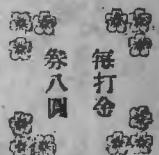 每打金
券八圓